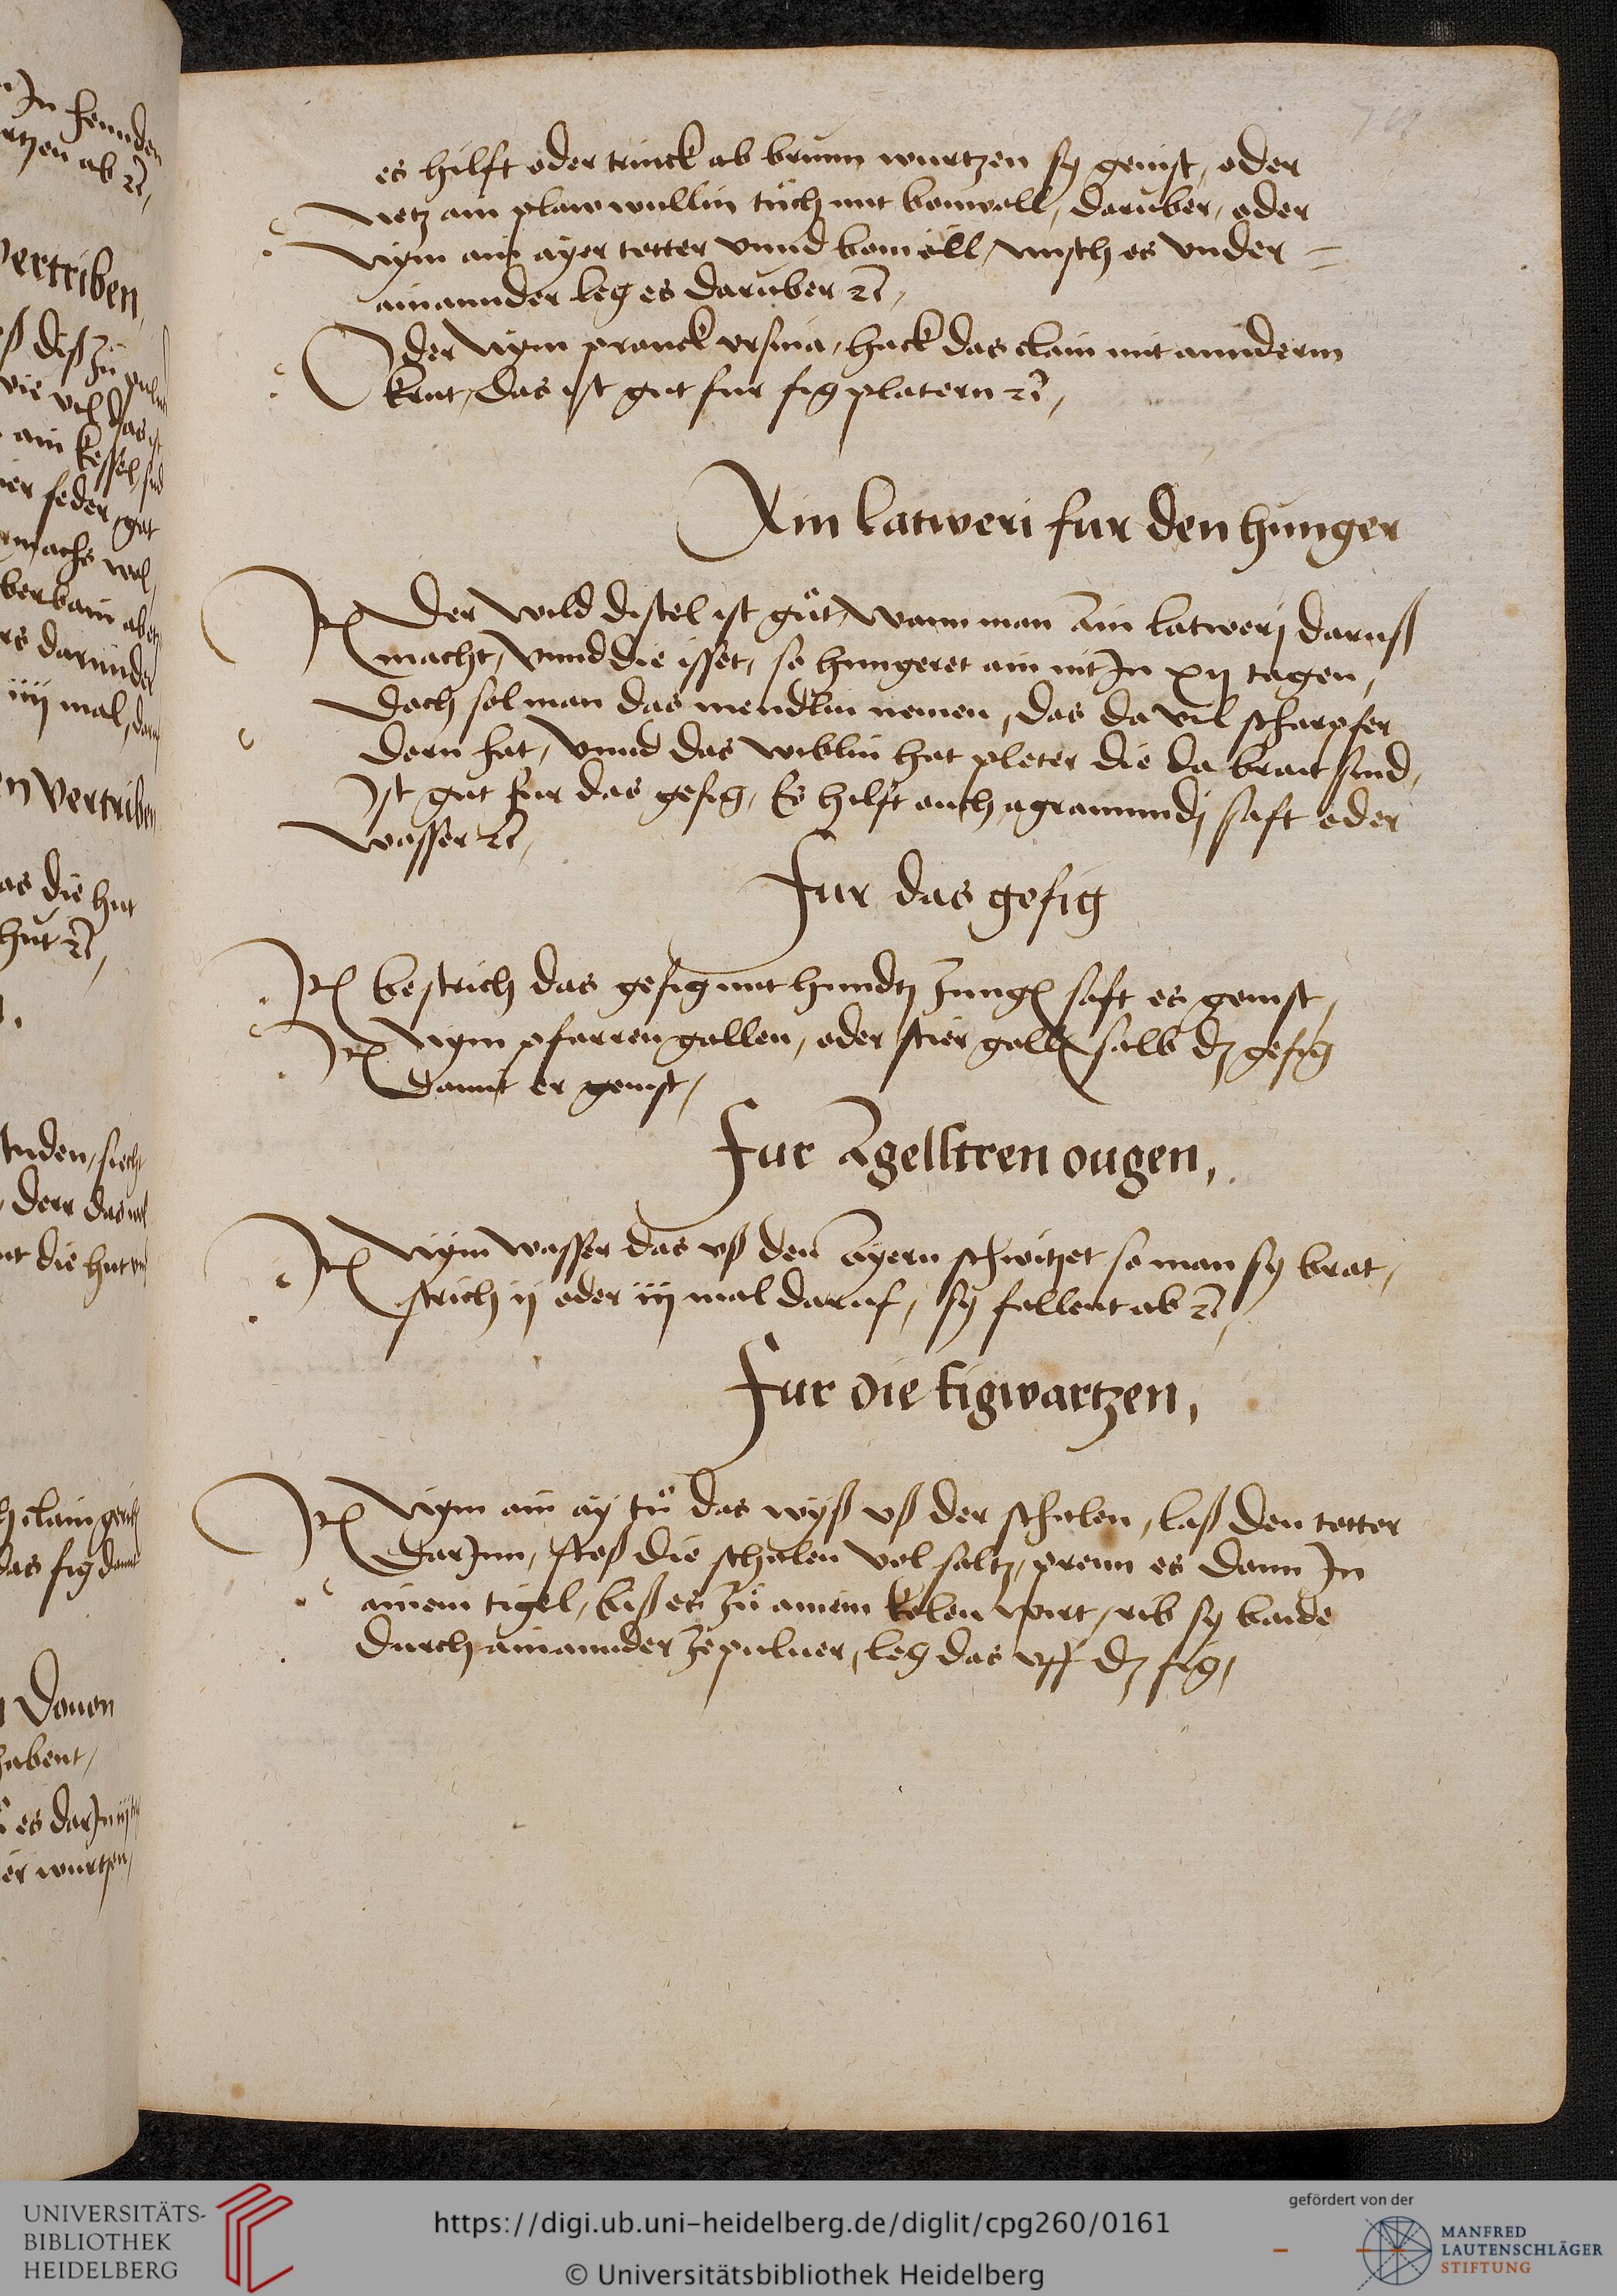 es hilft oder trinck ab brunn wurtzen sy genist, oder
netz ain plaw wullin tůch mit bomoll, daruber, oder
Nym ain ayer totter vnnd bom öll, misch es vnder =
ainannder leg es daruber ꝛc,
Oder Nym pranck vrsina, hack das clain mit annderm
krut, das ist gut fur fig platern ꝛc,
Ain latweri fur den hunger
Rp Der wild distel ist gůt, wann man Ain latwerj daruß
macht, Vnnd die isset, so hungeret ain nit Jn xij tagen,
Doch sol man das mendlin nemen, das da vil scharpfer
dorn hat, Vnnd das wiblin hat pleter die da brait sind,
Jst gut fur das gesig, Es hilft auch agramundj saft oder
wasser ꝛc,
Fur das gefig
Rp bestrich das gefig mit hundtz Zungen saft es genist,
Rp Nym pfarren gallen, oder stier gallen salb dz gefig
damit er genist,
Fur Agellstren ougen,
Rp Nym wasser das vß den Ayern schwitzet so man sy brat,
strich ij oder iij mal daruf, sy fallent ab ꝛc,
Fur die figwartzen,
Rp Nym ain ay tů das wyß vß der schalen, laß den totter
darJnn, stoß die schalen vol saltz, prenn es dann Jn
ainem tigel, biß es zů ainem kolen wirt, rib sy baide
durch ainannder ze puluer, leg das vff dz fig,
vertriben,
ain kessel
mal
vertriben
as die hut
hut ꝛc,
habent,
wurtzen,
UNIVERSITÄTS-
BIBLIOTHEK
HEIDELBERG
https://digi.ub.uni-heidelberg.de/diglit/cpg260/0161
© Universitätsbibliothek Heidelberg
gefördert von der
MANFRED
LAUTENSCHLÄGER
STIFTUNG